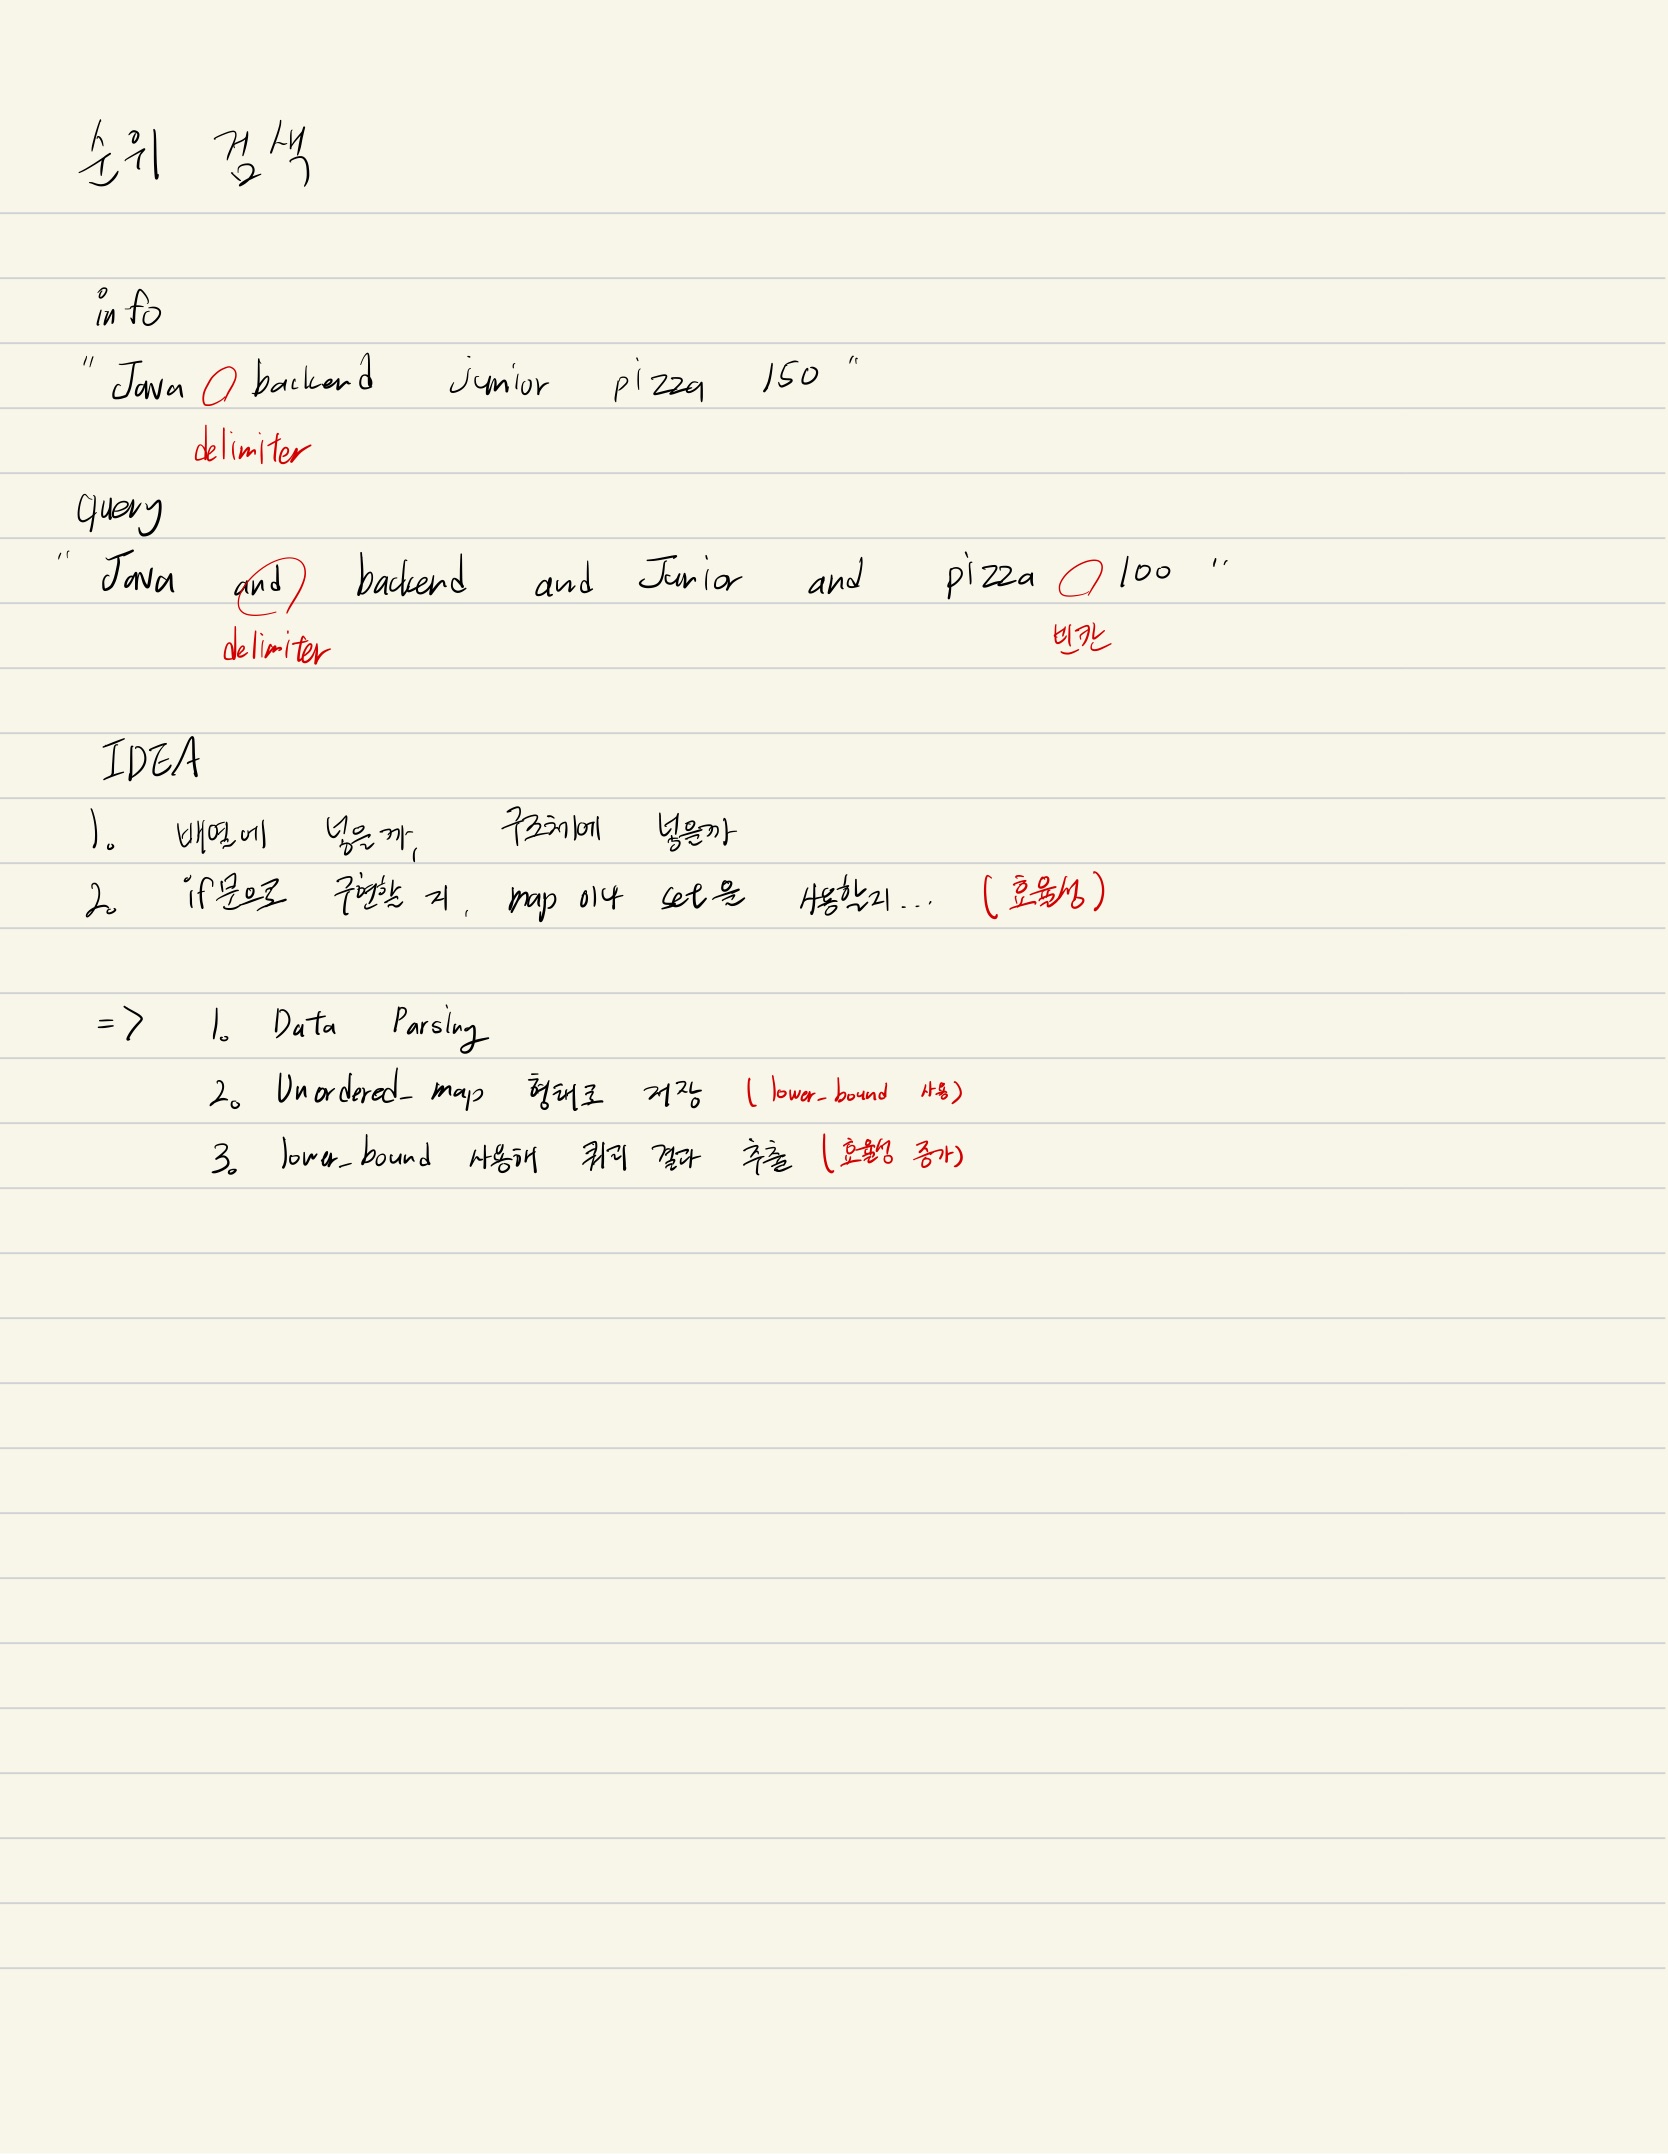 순위 검색
info
" Java backend junior pizza 150 "
delimiter
query
" Java and backend and Junior and pizza 100 "
delimiter 빈칸
IDEA
1. 배열에 넣을까, 구조체에 넣을까
2. if문으로 구현할 지, map 이나 set을 사용할지... (효율성)
=> 1. Data Parsing
2. Unordered_map 형태로 저장 (lower_bound 사용)
3. lower_bound 사용해 쿼리 결과 추출 (효율성 증가)